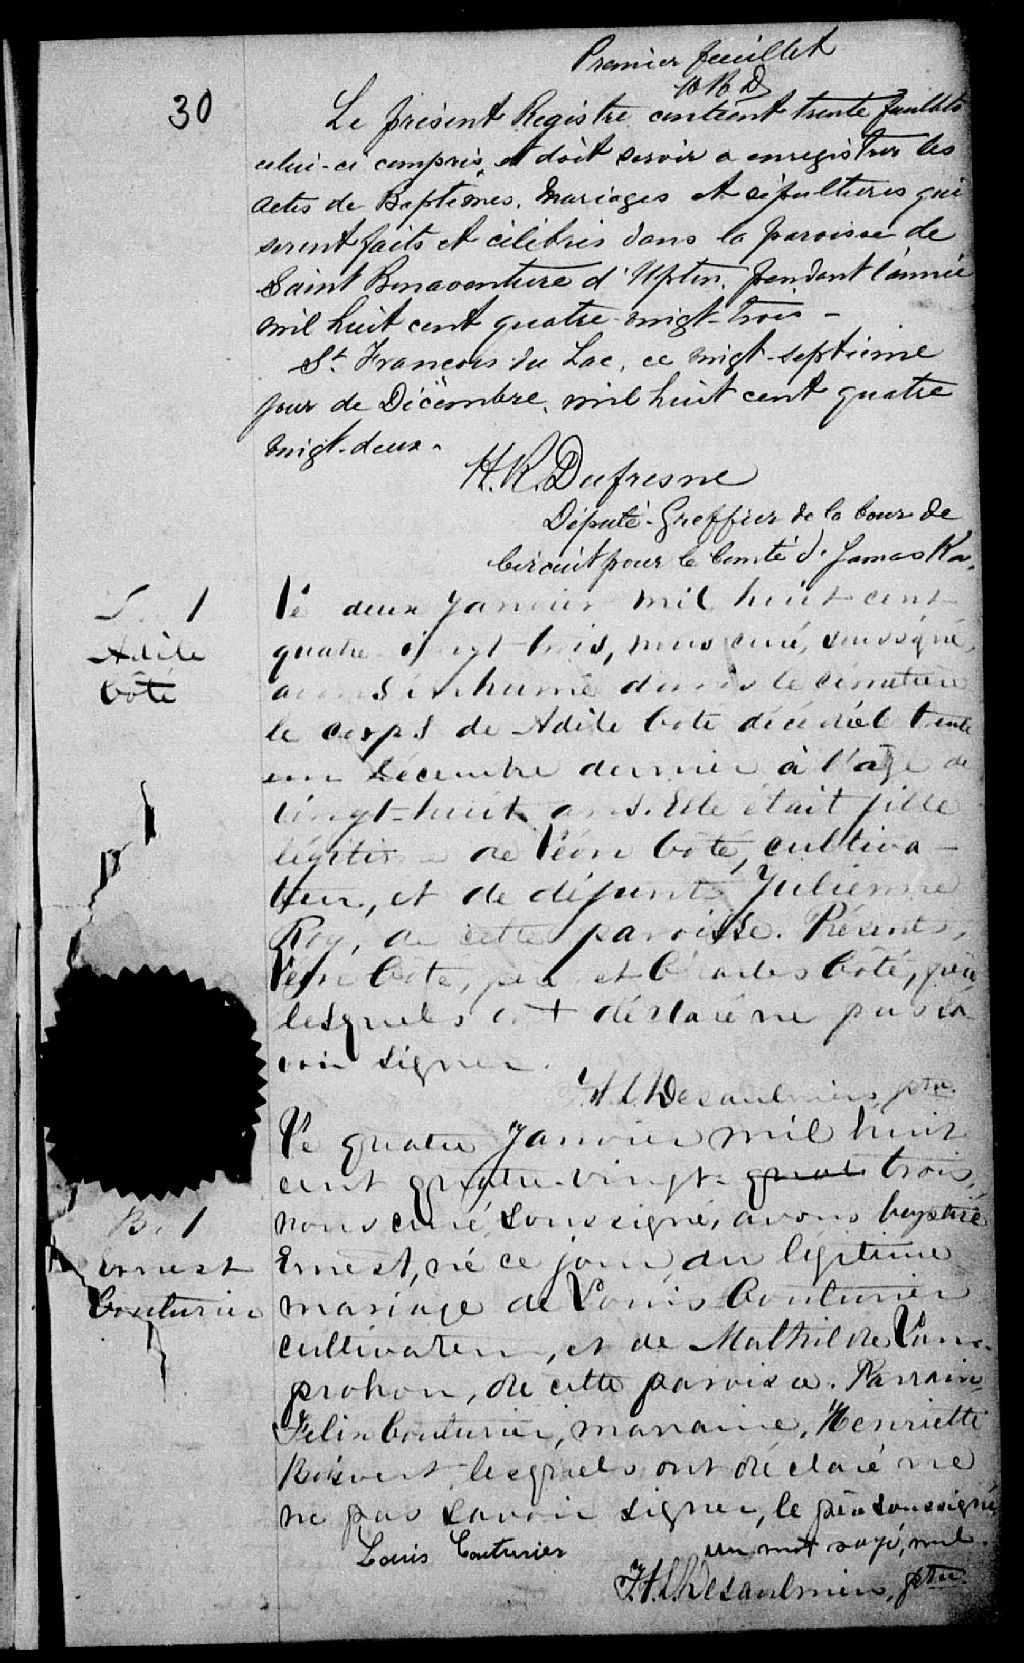 Premier feuillet
H R D
30
Le présent Registre contient trente feuillets
celui-ci compris, et doit servir a enregistrer les
actes de Baptêmes, Mariages et sépultures qui
seront faits et célébrés dans la paroisse de
Saint Bonaventure d'Upton, pendant l'année
mil huit cent quatre-vingt-trois -
St. Francois du Lac, ce vingt-septième
jour de Décembre, mil huit cent quatre
vingt-deux.
H. R. Dufresne
Député-Greffier de la Cour de
Circuit pour le Comté d'Yamaska.
S. 1
Adile
Côté
Le deux Janvier mil huit cent
quatre vingt trois, nous curé, soussigné,
avons inhumé dans le cimetière
le corps de Adile Coté décédée le trente
un Décembre dernier à l'age de
vingt-huit ans. Elle était fille
légitime de Léon Côté, cultiva-
teur, et de défunte Julienne
Roy, de cette paroisse. Présents,
Léon Côté, père et Charles Côté,
lesquels ont déclaré ne pas sa
voir signer.
F. H. L. Desaulniers, ptre.
B. 1
Ernest
Couturier
Le quatre Janvier mil huit
cent quatre-vingt-quat trois,
nous curé soussigné, avons baptisé
Ernest, né ce jour, du légitime
mariage de Louis Couturier
cultivateur, et de Mathilde Lam-
prohon, de cette paroisse. Parrain,
Félix Couturier, marraine, Henriette
Boisvert, lesquels ont déclaré ne
ne pas savoir signer, le père soussigné
un mot rayé, nul.
Louis Couturier
F. H. L. Desaulniers, ptre.